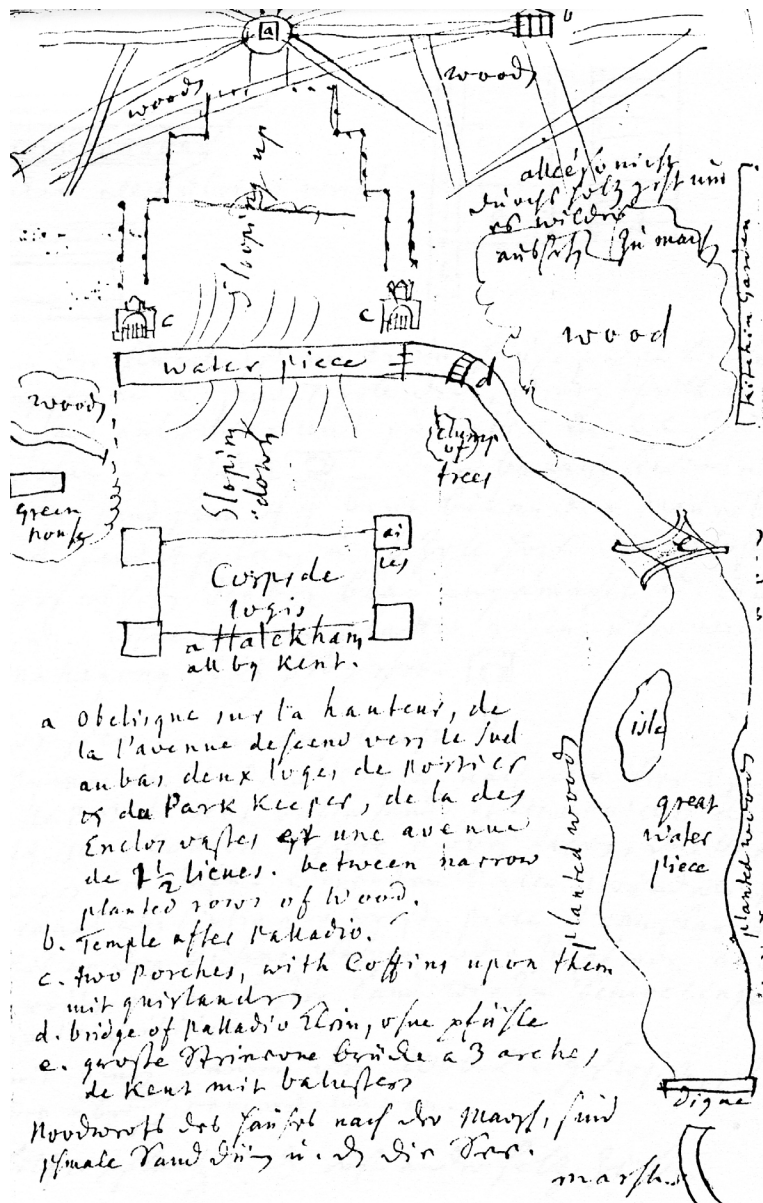 a
b
wood
wood
allée so nicht
durchs holz geht um
es wilder
zu mach
wood
Kitchin Garden
sloping up
c
c
water piece
d
wood
clump
of
trees
green
house
sloping
down
ai
les
e
Corps de
logis
a Halckham
all by Kent.
isle
great
water
piece
planted wood
planted wood
Digue
marsh
a Obelisque sur la hauteur, de
la l'avenue descend vers le sud
au bas deux loges de Portier
os de Park Keeper, de la des
Enclos vastes et une avenue
de 1 1/2 lieues. between narrow
planted rows of Wood.
b. Temple after Palladio.
c. two Porches, with Coffins upon them
mit guirlandes
d. bridge of Palladio klein, ohne
e. große Steinerne brücke a 3 arches
de Kent mit balusters
Noordwerts des Hauses nach der Marsh, sind
schmale Sand Dün u. d die See.